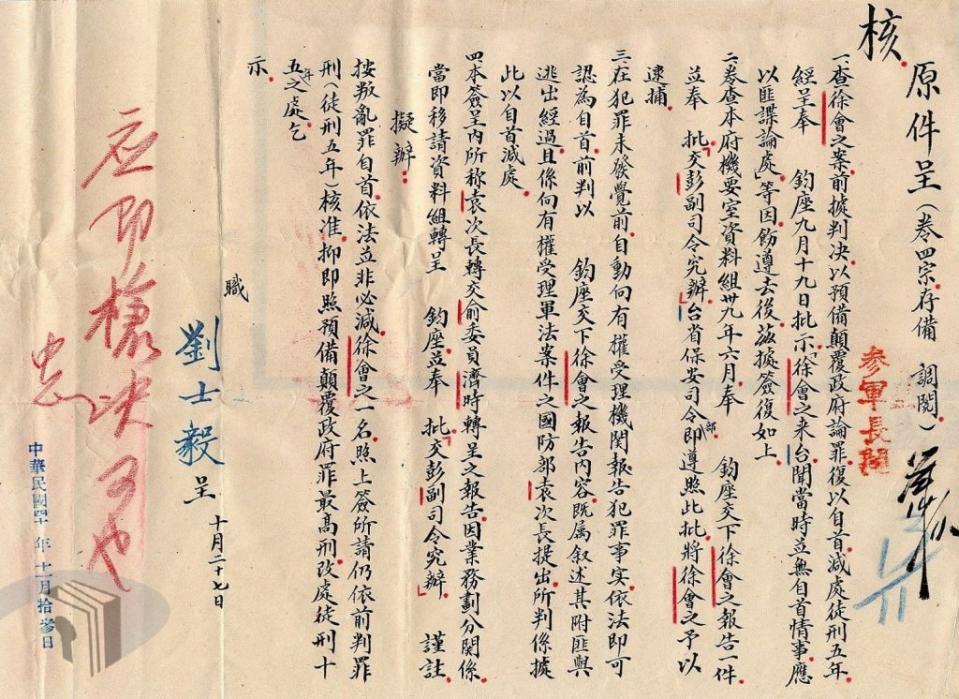 核
原件呈（卷四宗存備　調閱）
參軍長閱
一、查徐會之案、前據判決以預備顛覆政府論罪、復以自首減處徒刑五年、
經呈奉　鈞座九月十九日批示「徐會之來台聞當時並無自首情事、應
以匪諜論處」等因、飭遵去後、茲據簽復如上。
二、卷查本府機要室資料組卅九年六月奉　鈞座交下徐會之報告一件、
並奉　批「交彭副司令究辦」台省保安司令部即遵照此批、將徐會之予以
逮捕。
三、在犯罪未發覺前、自動向有權受理機關報告犯罪事實、依法即可
認為自首、前判以　鈞座交下徐會之報告內容、既屬叙述其附匪與
逃出經過、且係向有權受理軍法案件之國防部袁次長提出、所判係據
此以自首減處。
四、本簽呈內所稱袁次長轉交俞委員濟時轉呈之報告、因業務劃分關係、
當即移請資料組轉呈　鈞座、並奉　批「交彭副司令究辦」　謹註
擬辦：
按叛亂罪自首、依法並非必減、徐會之一名、照上簽所請仍依前判罪
刑（徒刑五年）核准、抑即照預備顛覆政府罪最高刑、改處徒刑十
五年之處、乞
示。
職
劉士毅呈
十月二十七日
應即槍決可也
中華民國四十年十一月拾參日